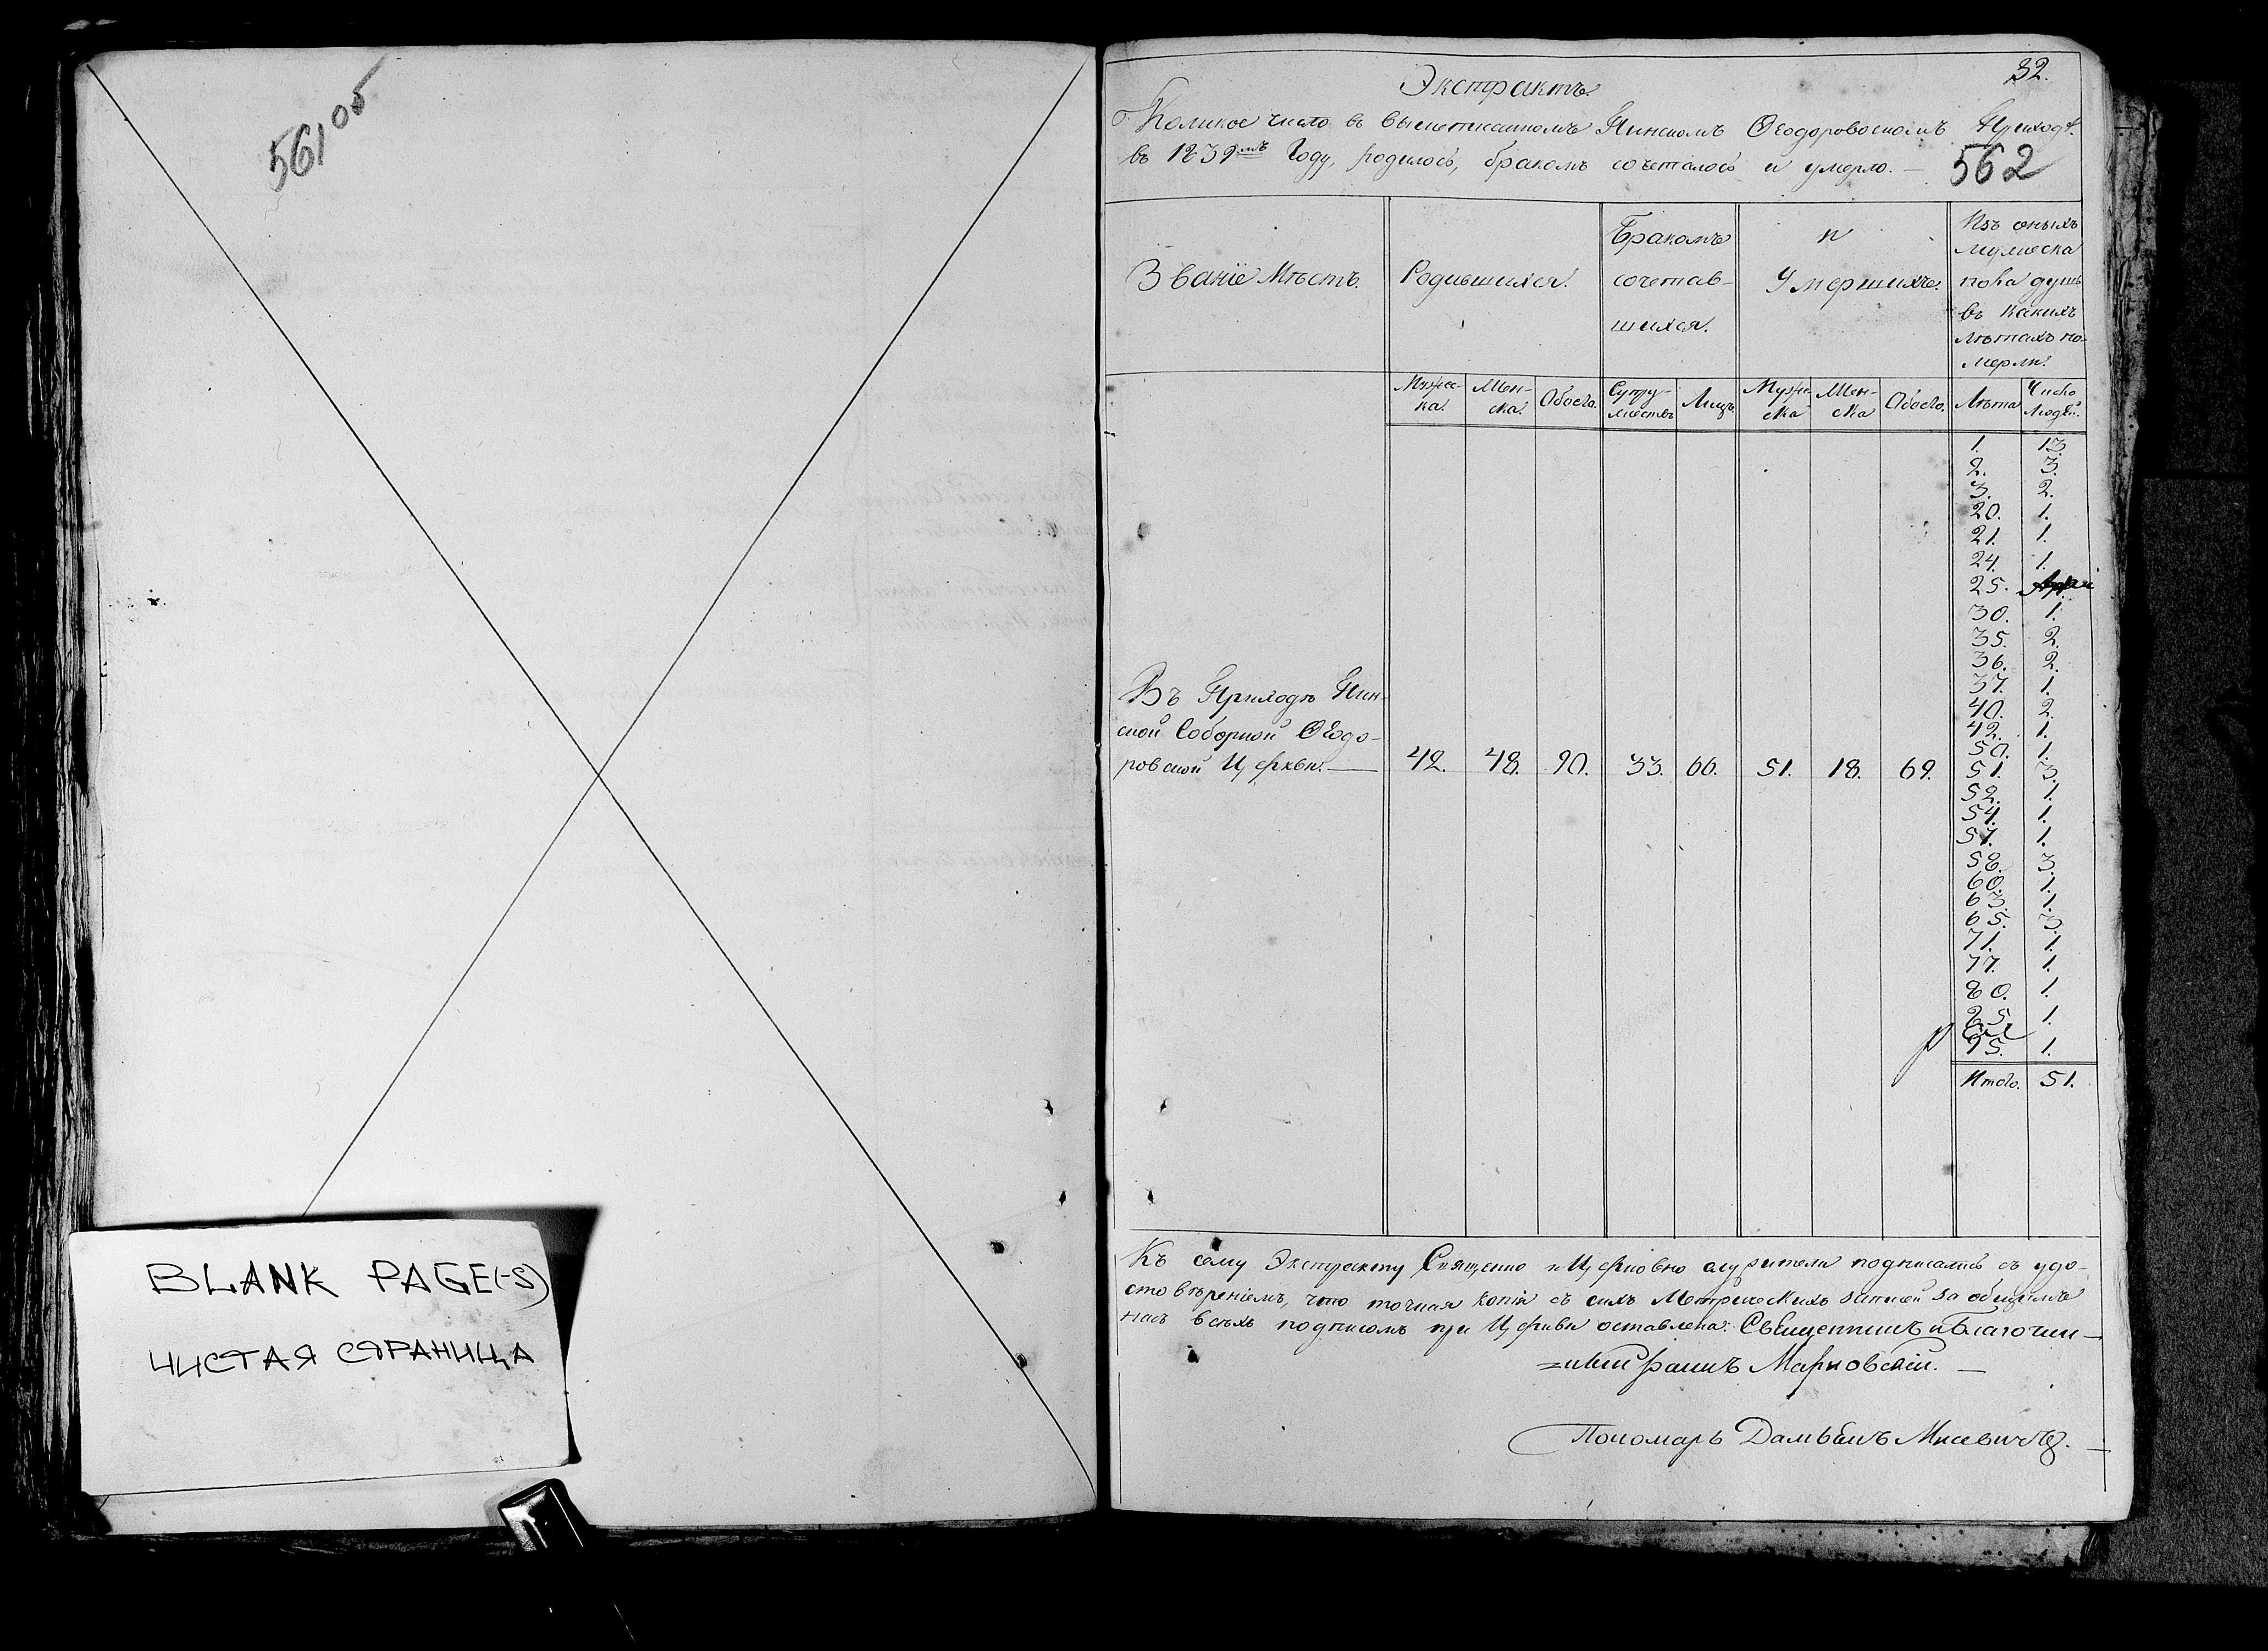 561 об
BLANK PAGE(-S)
ЧИСТАЯ СТРАНИЦА
32.
Экстрактъ
о Коликое число въ Пинскомъ Ѳеодоровскомъ Приходѣ
въ 1839мъ Году, родилось, бракомъ сочеталось и умерло. —
562
Званіе Мѣстъ.
Родившихся.
Бракомъ
сочетав-
шихся.
Умершихъ.
Изъ оныхъ
мужеска
пола душъ
въ какихъ
лѣтахъ по-
мерли.
Мужес-
ка.
Жен-
ска.
Обоего.
Супру-
жествъ
Лицъ
Муже-
ска
Жен-
ска
Обоего.
Лѣта
Число
Людей.
1. 13.
2. 3.
3. 2.
20. 1.
21. 1.
24. 1.
25.
30. 1.
35. 2.
36. 2.
37. 1.
40. 2.
42. 1.
50. 1.
51. 3.
52. 1.
54. 1.
57. 1.
58. 3.
60. 1.
63. 1.
65. 3.
71. 1.
77. 1.
80. 1.
85. 1.
95. 1.
Итого. 51.
Въ Приходѣ Пин-
ской Соборной Ѳеодо-
ровской Церкви. — 42. 48. 90. 33. 66. 51. 18. 69.
Къ сему Экстракту Священно и Церковно служители подписались съ удо-
стовѣреніемъ, что точная копія съ сихъ Метрическихъ записей за общимъ
насъ всѣхъ подписомъ при Церкви оставлена: Священникъ и Благочин-
Марковскій. —
Пономаръ Мисевичъ. —